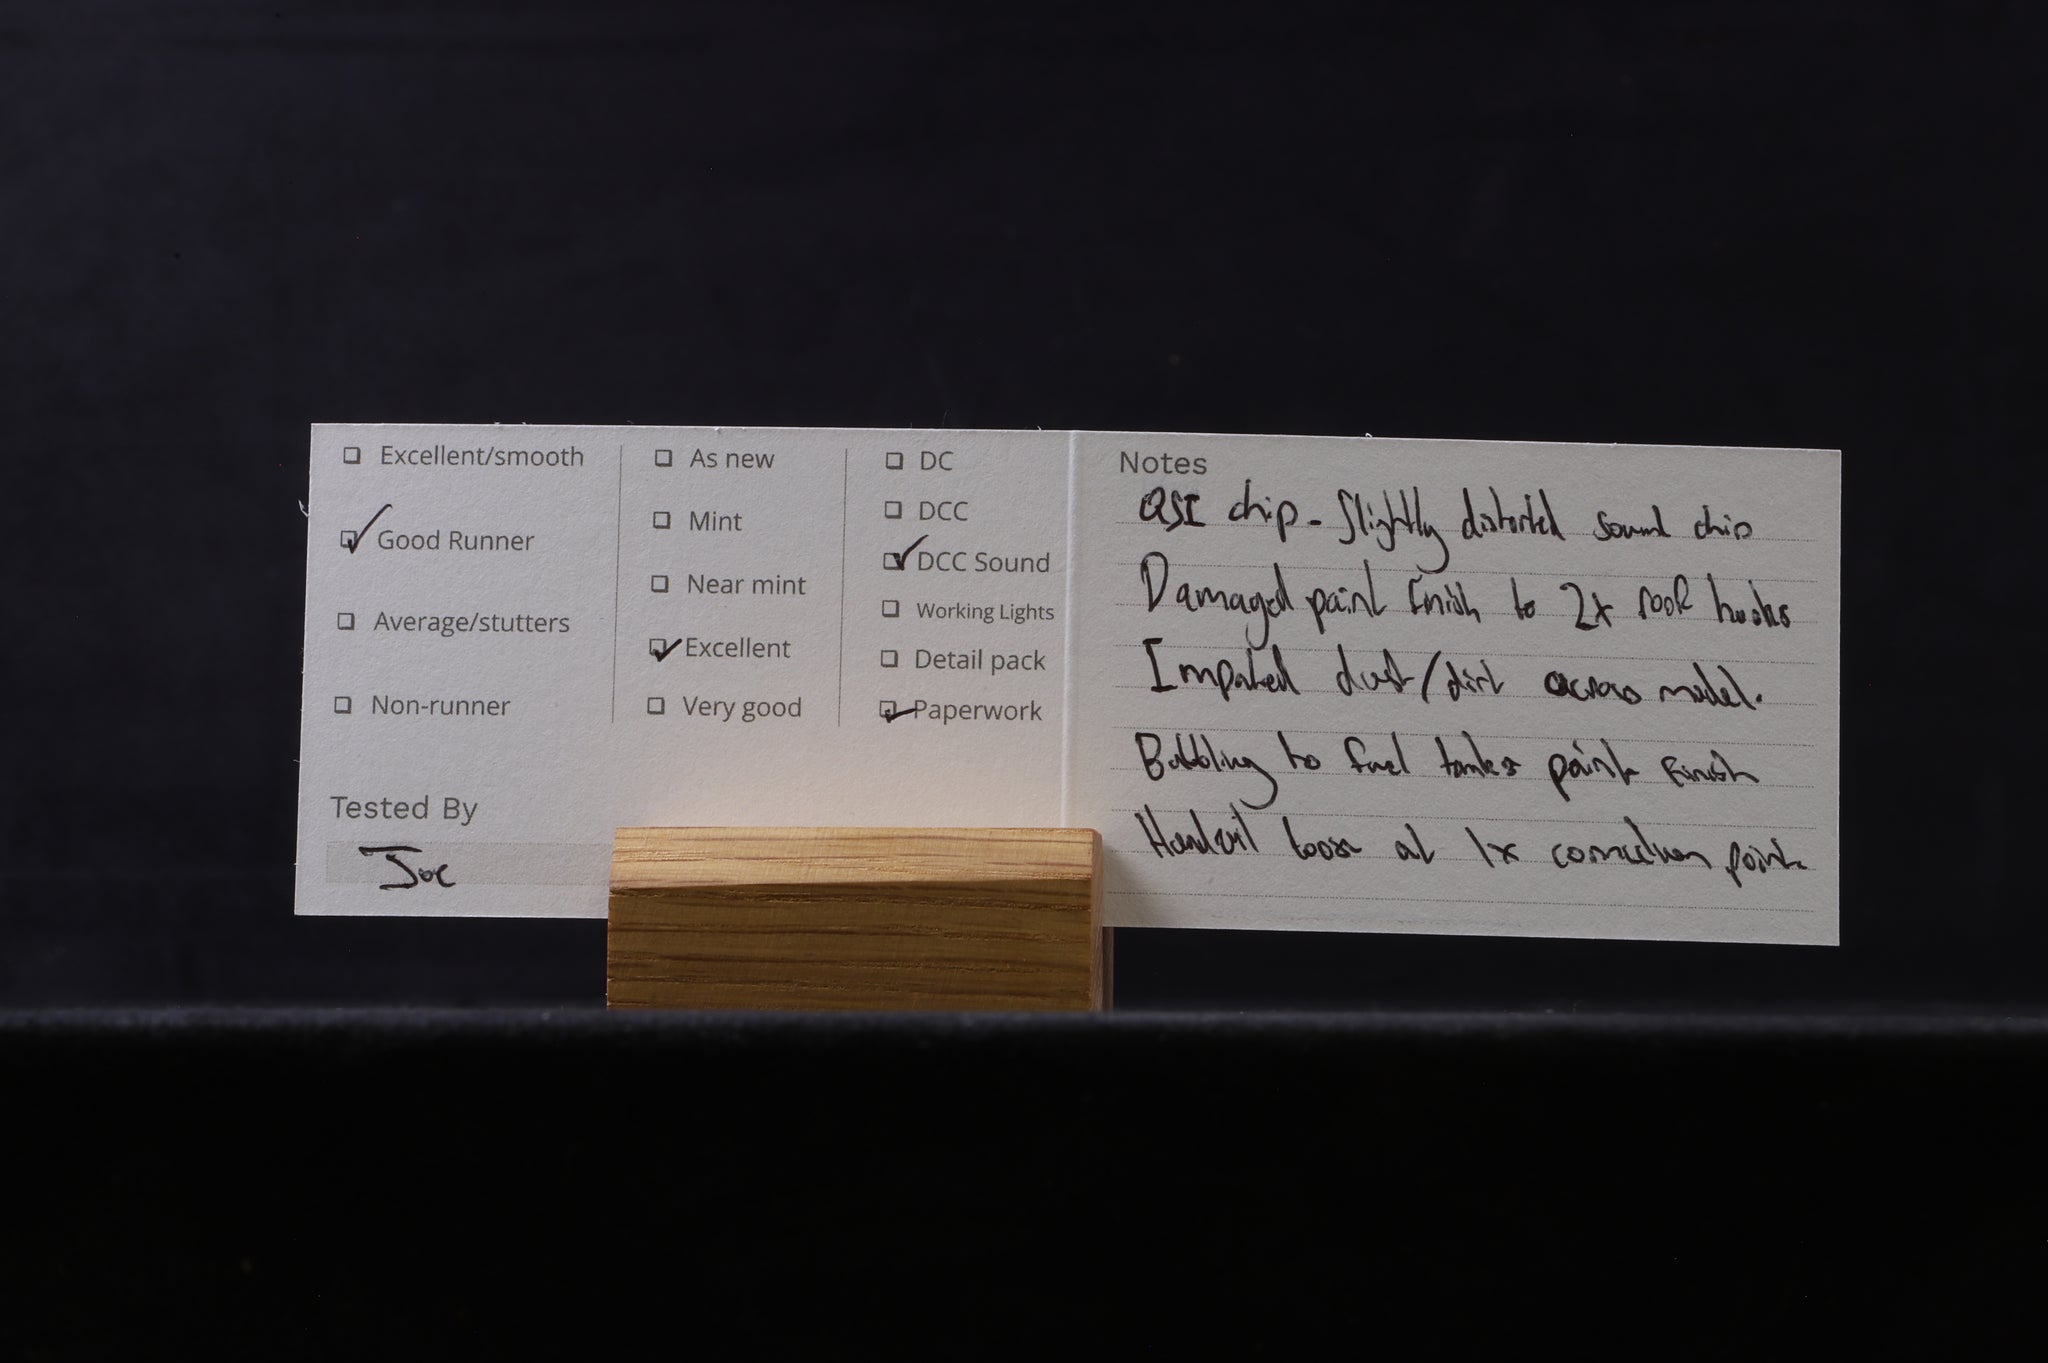 Excellent/smooth
Good Runner
Average/stutters
Non-runner
As new
Mint
Near mint
Excellent
Very good
DC
DCC
DCC Sound
Working Lights
Detail pack
Paperwork
Tested By
Joe
Notes
QSI chip - Slightly distorted sound chip
Damaged paint finish to 2x roof hooks
Impacted dust/dirt across model.
Bubbling to fuel tanks paint finish
Handrail loose at 1x connection point